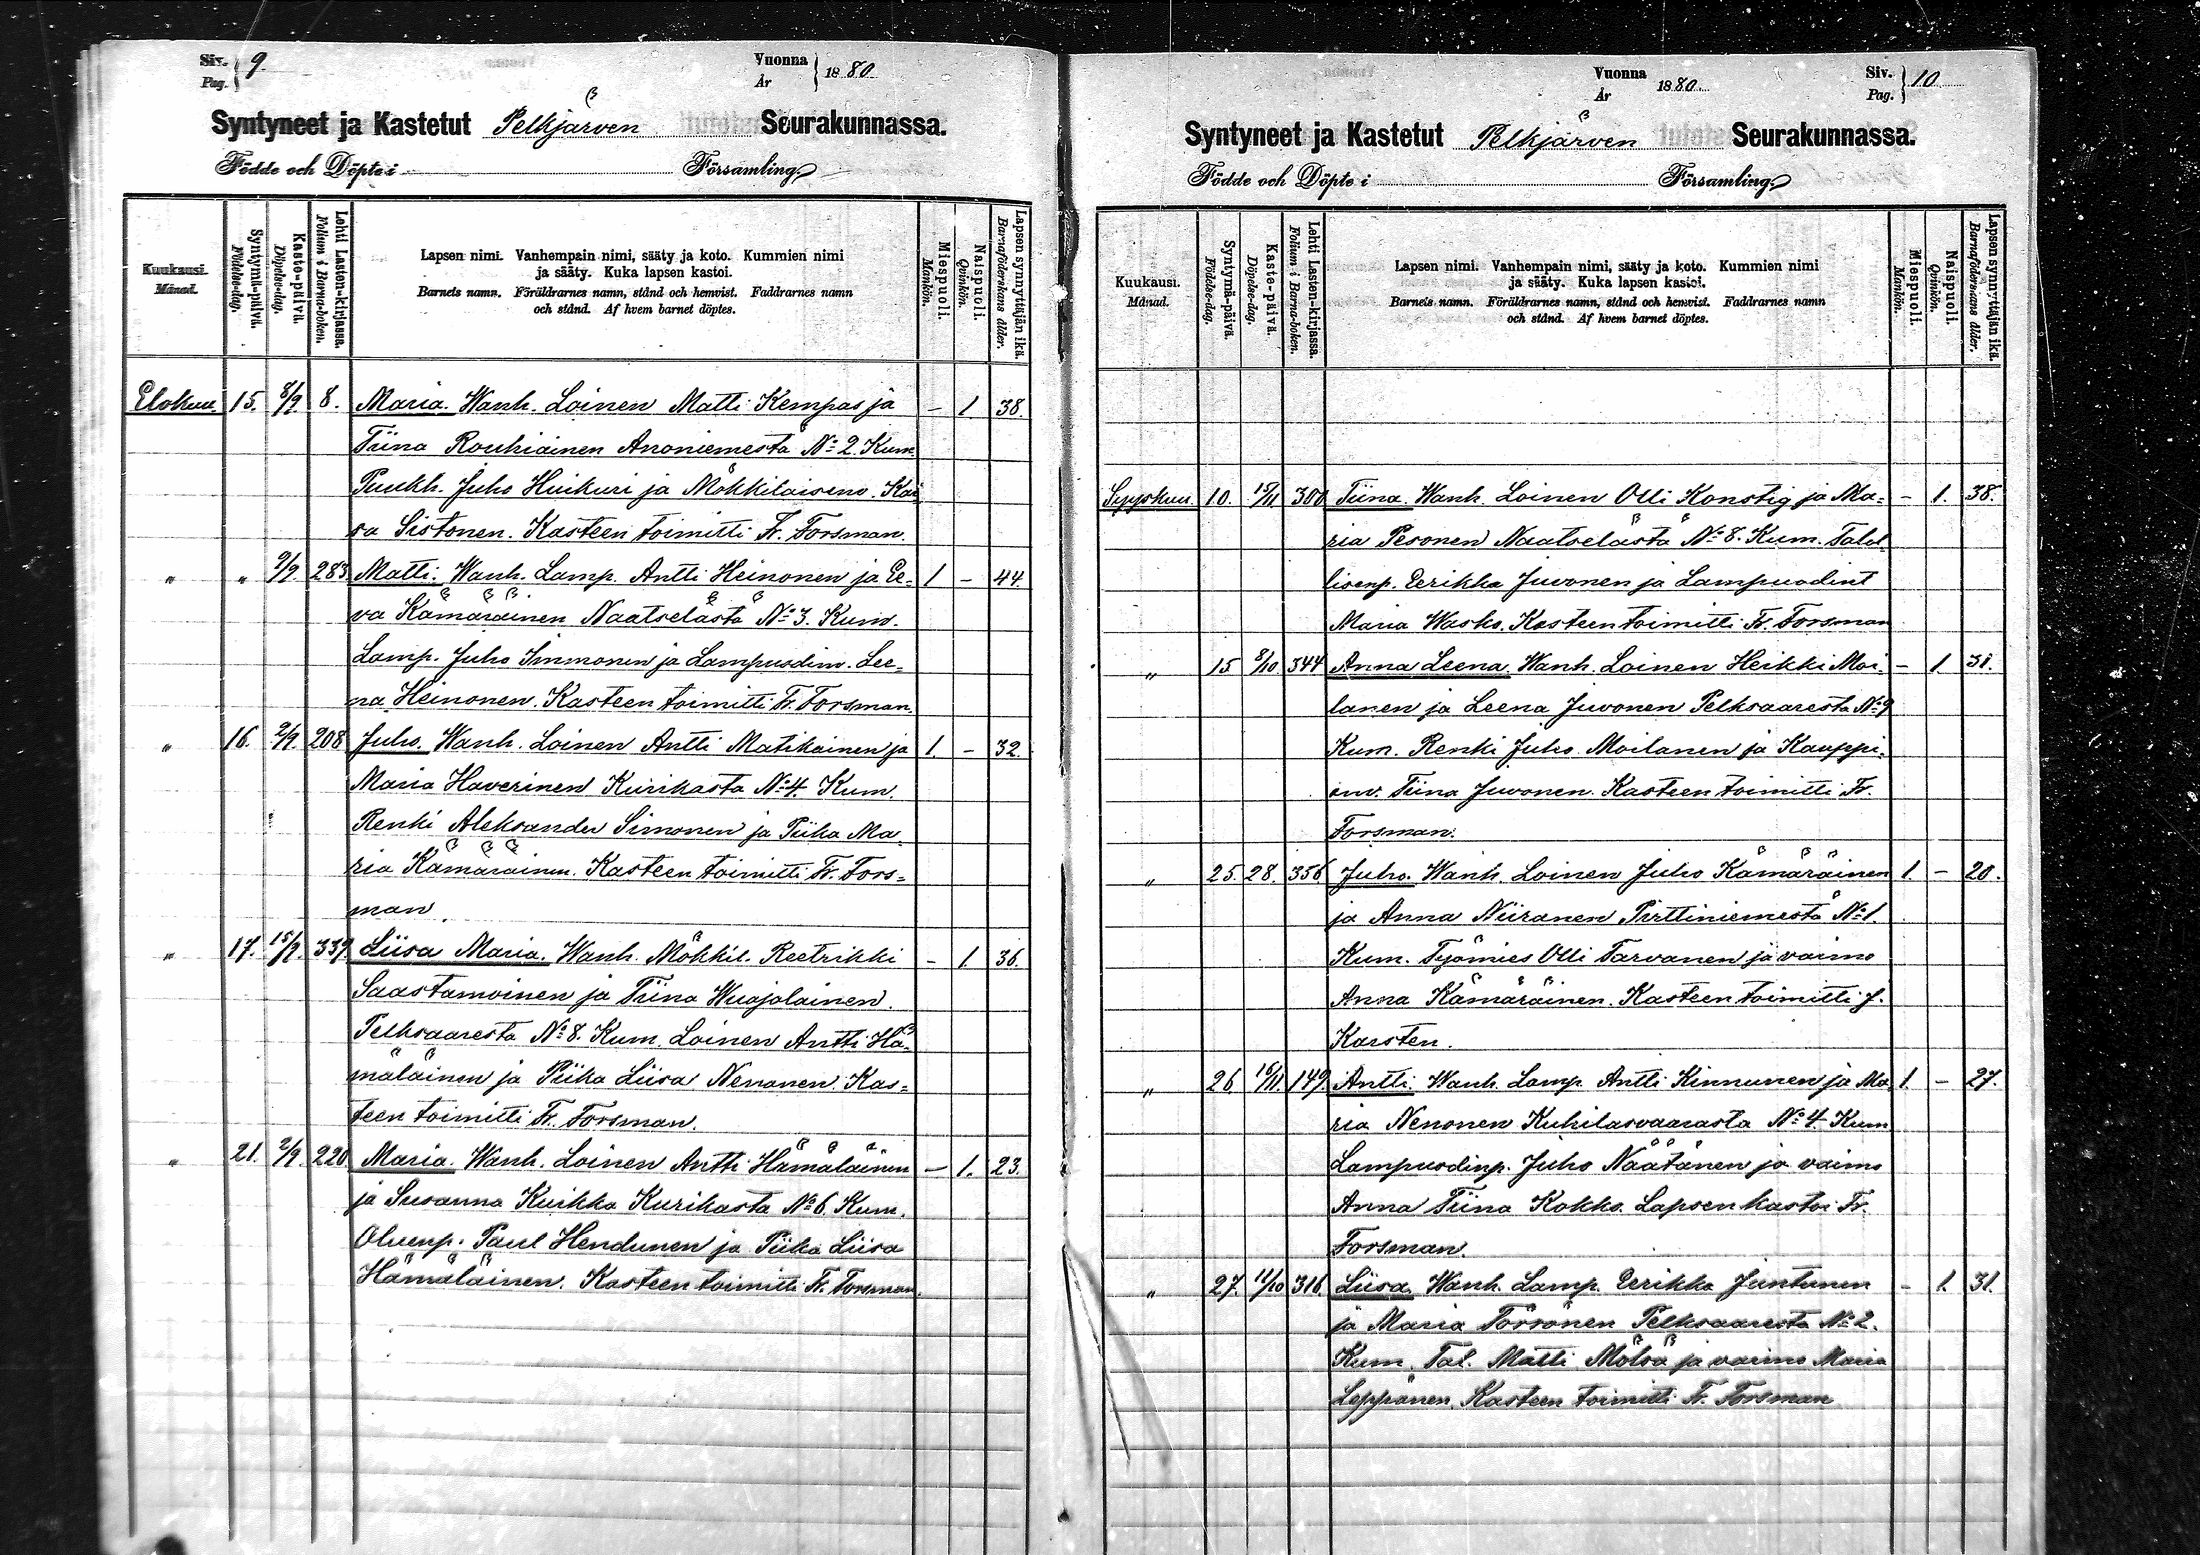 Siv. Pag. } 9
Vuonna År } 1880.
Syntyneet ja Kastetut Pelkjärven Seurakunnassa.
Födde och Döpte i Församling.
Kuukausi. Månad.
Syntymä-päivä. Födelse-dag.
Kaste-päivä. Döpelse-dag.
Lehti Lasten-kirjassa. Folium i Barna-boken.
Lapsen nimi. Vanhempain nimi, sääty ja koto. Kummien nimi
ja sääty. Kuka lapsen kastoi.
Barnets namn. Föräldrarnes namn, stånd och hemvist. Faddrarnes namn
och stånd. Af hvem barnet döptes.
Miespuoli. Mankön.
Naispuoli. Qvinkön.
Lapsen synnyttäjän ikä. Barnaföderskans ålder.
Elokuu. 15. 8/9. 8. Maria. Wanh. Loinen Matti Kempas ja – 1. 38.
Tiina Rouhiainen Anoniemestä No 2. Kum.
Puukh. Juho Huikuri ja Mökkilaisenv. Kai
sa Sistonen. Kasteen toimitti Fr. Forsman.
" " 9/9. 283 Matti. Wanh. Lamp. Antti Heinonen ja Ee- 1 – 44.
va Kämäräinen Naatselästä No 3. Kum.
Lamp. Juho Immonen ja Lampuodinv. Lee-
na Heinonen. Kasteen toimitti Fr. Forsman.
" 16. 2/9. 208 Juho. Wanh. Loinen Antti Matikainen ja 1. – 32.
Maria Haverinen Kurikasta No 4. Kum.
Renki Aleksander Simonen ja Piika Ma
ria Kämäräinen. Kasteen toimitti Fr. Fors-
man.
" 17. 15/9. 339. Liisa Maria. Wanh. Mökkil. Reetrikki – 1. 36.
Saastamoinen ja Tiina Wuojolainen.
Pelksaaresta No 8. Kum. Loinen Antti Hä-
mäläinen ja Piika Liisa Nenonen. Kas-
teen toimitti Fr. Forsman.
" 21. 2/9. 220 Maria. Wanh. Loinen Antti Hämäläinen – 1. 23.
ja Susanna Kuikka Kurikasta No 6. Kum.
Paul Hendunen ja Piika Liisa
Hämäläinen. Kasteen toimitti Fr. Forsman.
Vuonna År } 1880.
Siv. Pag. } 10
Syntyneet ja Kastetut Pelkjärven Seurakunnassa.
Födde och Döpte i Församling.
Kuukausi. Månad.
Syntymä-päivä. Födelse-dag.
Kaste-päivä. Döpelse-dag.
Lehti Lasten-kirjassa. Folium i Barna-boken.
Lapsen nimi. Vanhempain nimi, sääty ja koto. Kummien nimi
ja sääty. Kuka lapsen kastoi.
Barnets namn. Föräldrarnes namn, stånd och hemvist. Faddrarnes namn
och stånd. Af hvem barnet döptes.
Miespuoli. Mankön.
Naispuoli. Qvinkön.
Lapsen synnyttäjän ikä. Barnaföderskans ålder.
Syyskuu. 10. 15/11 300 Tiina. Wanh. Loinen Olli Konstig ja Ma- – 1. 38.
ria Pesonen Naatselästä No 8. Kum. Talol
lisenp. Eerikka Juvonen ja Lampuodint
Maria Wasko. Kasteen toimitti Fr. Forsman
" 15 8/10. 344 Anna Leena. Wanh. Loinen Heikki Moi- – 1. 31.
lanen ja Leena Juvonen Pelksaaresta No 9
Kum. Renki Juho Moilanen ja Kauppi-
env. Tiina Juvonen. Kasteen toimitti Fr.
Forsman.
" 25. 28. 356 Juho. Wanh. Loinen Juho Kämäräinen 1. – 20.
ja Anna Niiranen Pirttiniemestä No 1.
Kum. Työmies Olli Tarvanen ja vaimo
Anna Kämäräinen. Kasteen toimitti J.
Karsten.
" 26. 16/11. 149. Antti. Wanh. Lamp. Antti Kinnunen ja Ma 1. – 27.
ria Nenonen Kuhilasvaarasta No 4. Kum
Lampuodinp. Juho Näätänen ja vaimo
Anna Tiina Kokko. Lapsen kastoi Fr.
Forsman.
" 27. 11/10 316. Liisa. Wanh. Lamp. Eerikka Juntunen – 1. 31.
ja Maria Törrönen Pelksaaresta No 2.
Kum. Tal. Matti Mölsä ja vaimo Maria
Leppänen. Kasteen toimitti Fr. Forsman